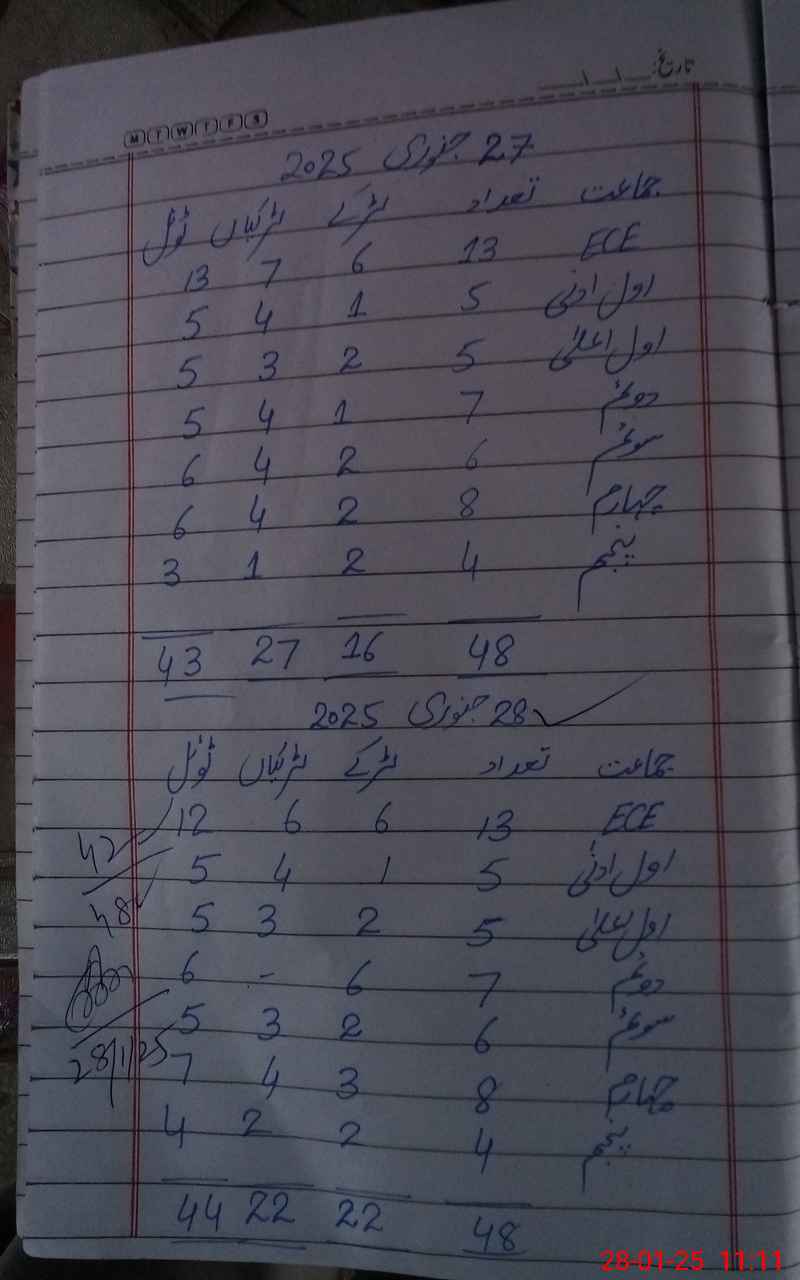 تاریخ: / /
M T W T F S
27 جنوری 2025
جماعت تعداد لڑکے لڑکیاں ٹوٹل
ECE 13 6 7 13
اول ادنیٰ 5 1 4 5
اول اعلیٰ 5 2 3 5
دوئم 7 1 4 5
سوئم 6 2 4 6
چہارم 8 2 4 6
پنجم 4 2 1 3
48 16 27 43
28 جنوری 2025
جماعت تعداد لڑکے لڑکیاں ٹوٹل
ECE 13 6 6 12
اول ادنیٰ 5 1 4 5
اول اعلیٰ 5 2 3 5
دوئم 7 6 - 6
سوئم 6 2 3 5
چہارم 8 3 4 7
پنجم 4 2 2 4
48 22 22 44
42
48
28/1/25
28-01-25 11:11